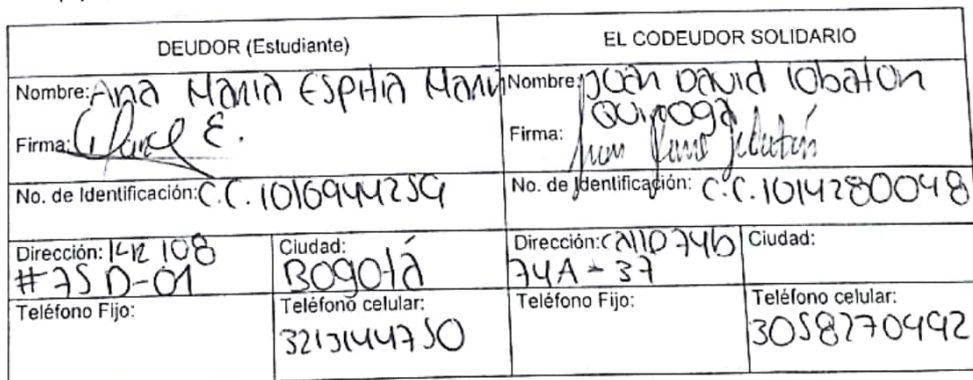 DEUDOR (Estudiante)
EL CODEUDOR SOLIDARIO
Nombre: Ana Maria Espitia Marin
Nombre: Juan David lobaton
Quiroga
Firma: E.
Firma: Juan David Lobatón
No. de Identificación: C.C. 1016944259
No. de Identificación: C.C. 1014280048
Dirección: 108
#75D-01
Ciudad:
Bogotá
Dirección: Calle 74b
74A - 37
Ciudad:
Teléfono Fijo:
Teléfono celular:
3213144750
Teléfono Fijo:
Teléfono celular:
3058270492